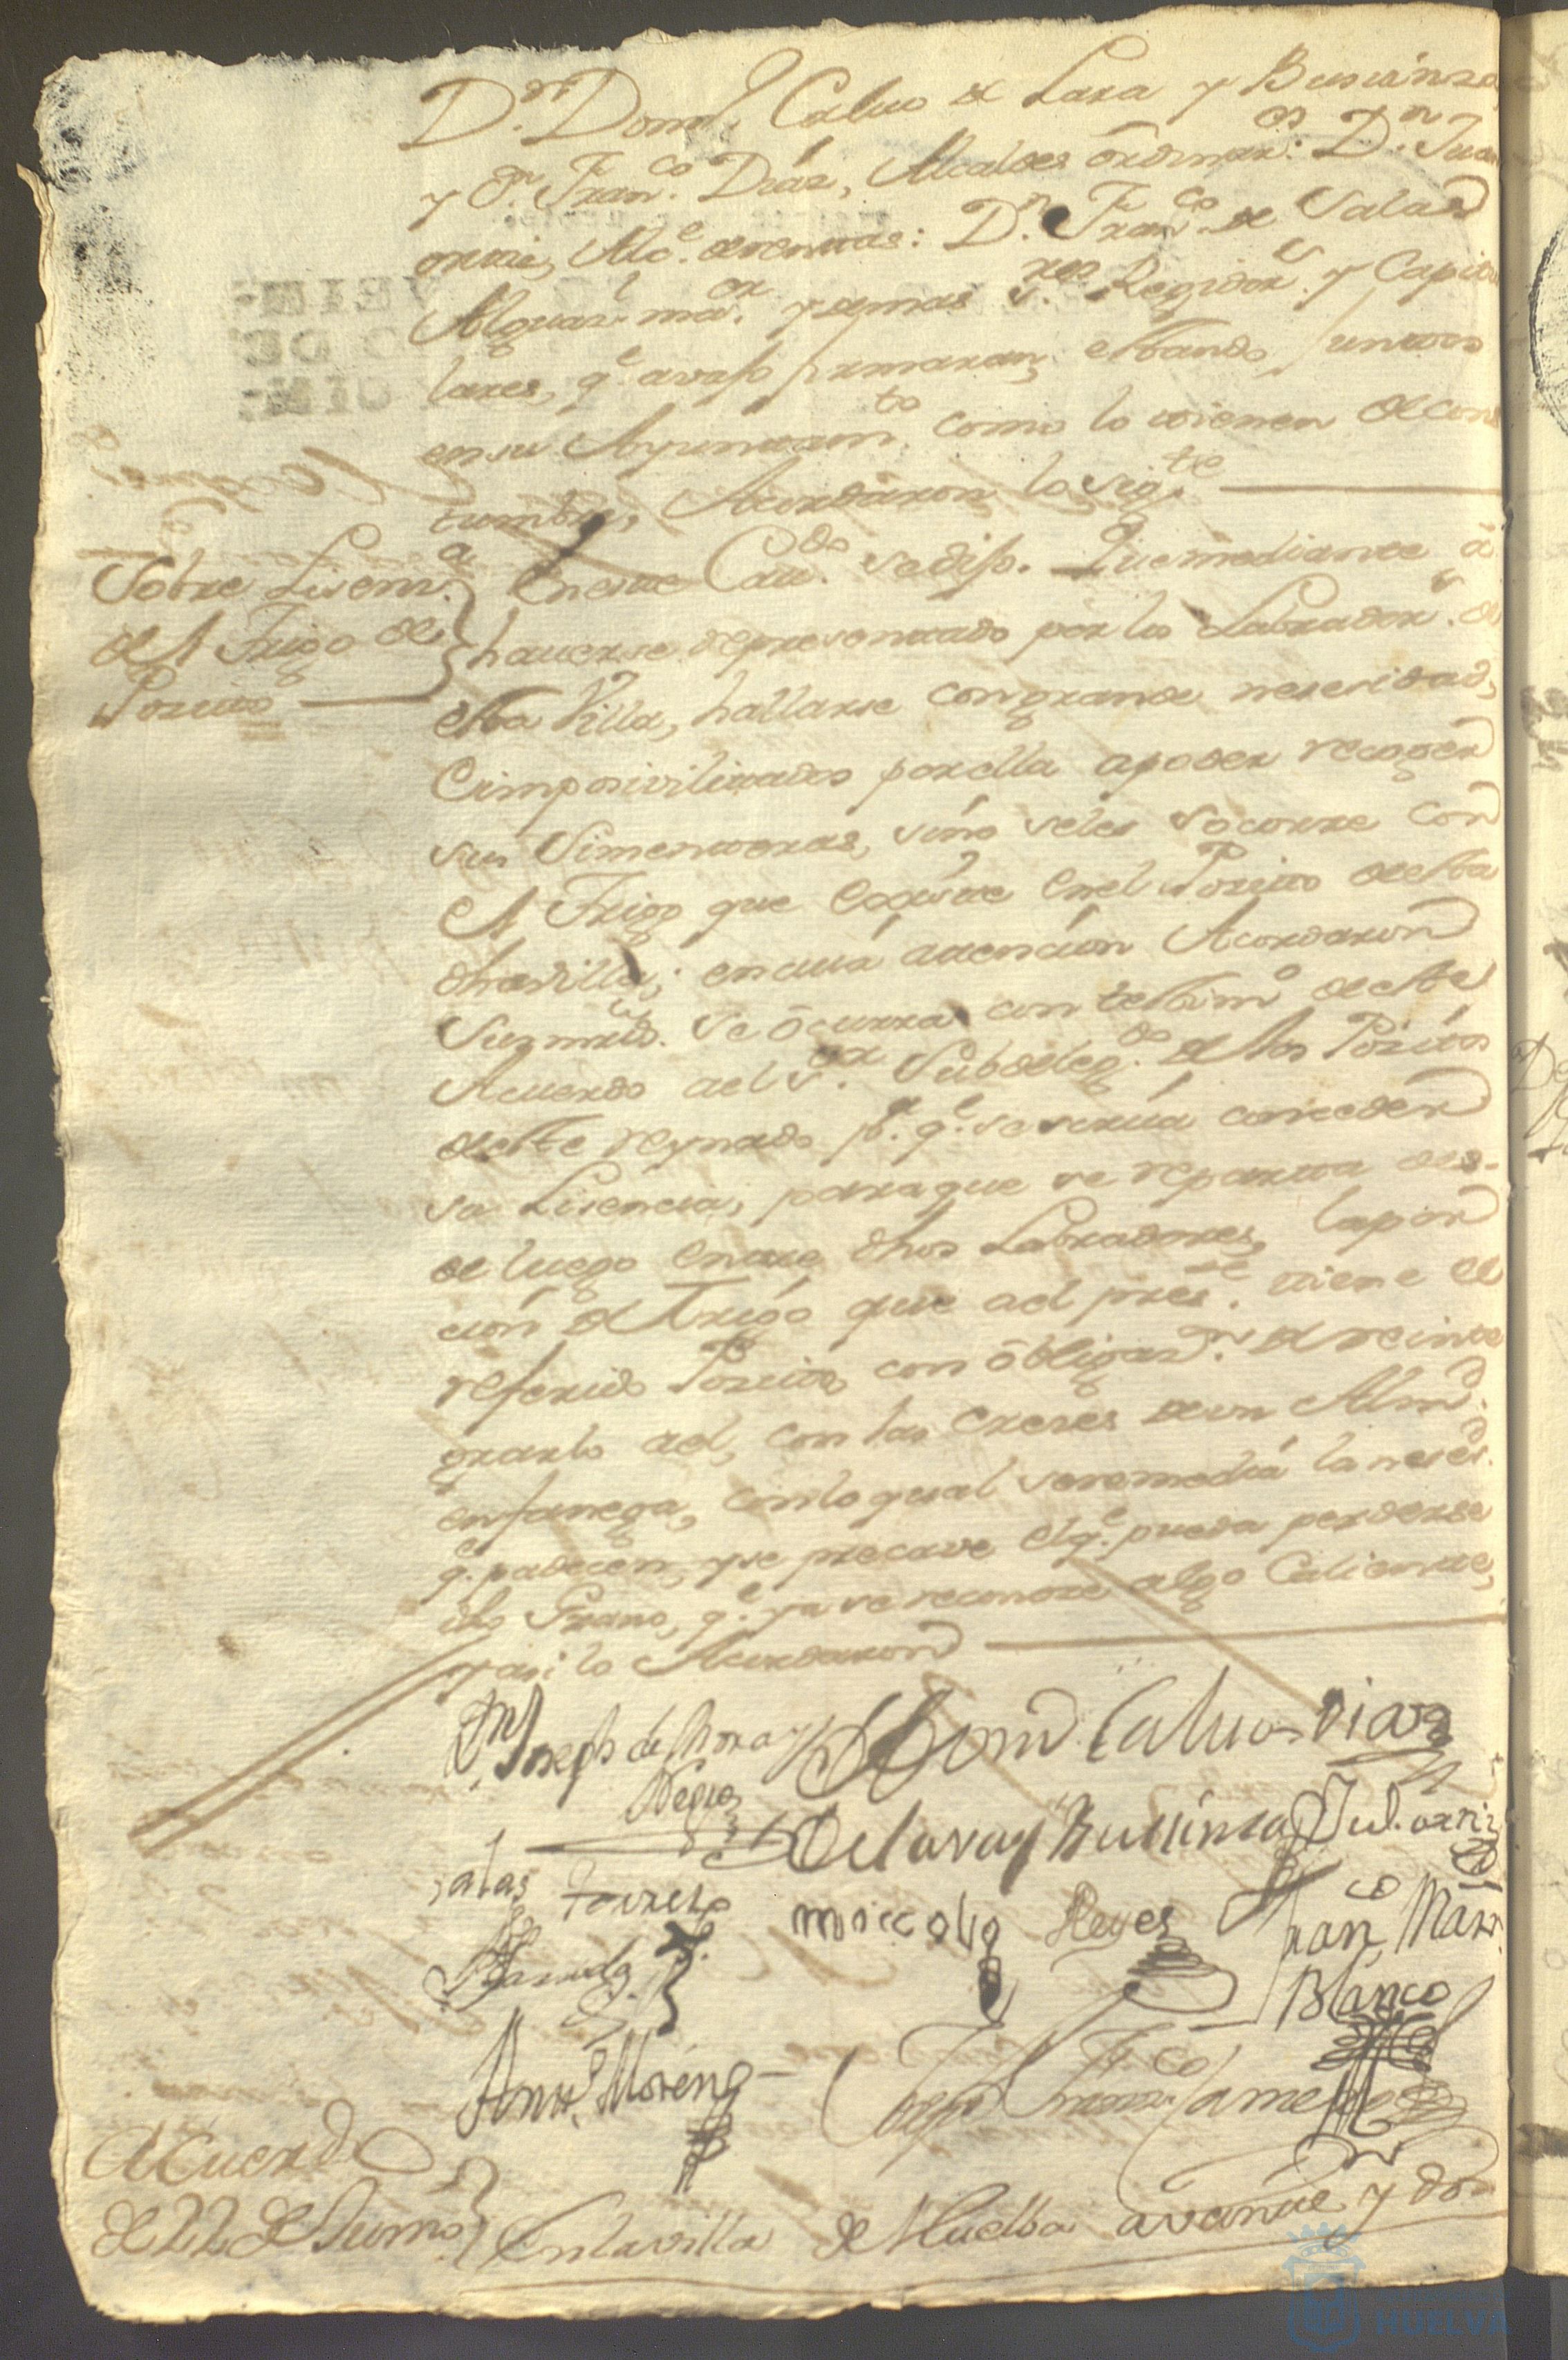 Dn. Domo. Calvo de Lara y Buccinza
y Dn. Franco. Diáz, Alcaldes ôrdinars. Dn. Juan
Alce. Dn. Franco. de Salas
Alguazl. maor. y demas Sres. Regidors. y Capitu
lares, qe. avajo firmaran, estando juntos
en su Ayuntamto. como lo tienen de cos
tumbre, Acordaron lo sigte.
Sobre Lisena.
del Trigo del
Posito
En este Cavdo. se dijo. Que mediante â
haverse representado por los Labradors. de
esta Villa, hallarse con grande nesesidad,
e imposivilitados por ella a poder recoger
sus Simenteras, sino seles socorre con
el Trigo que existe en el Posito de esta
dha villa; en cuia atencion Acordaron
Sus mrds. se ôcurra con testimo. de este
Acuerdo ael Sor. Subdelegdo. de los Positos
de este reynado pa. qe. se sirva conceder
su Lisencia, para que se reparta des-
de luego entre dhos Labradores, la por
cion de Trigo que ael preste. tiene el
referido Posito, con ôbligazn. de reinte
grarlo ael, con las Creses de un Almd.
en fanega, con lo qual se remedia la nesesd.
qe. padecen, y se precave el qe. pueda perderse
dho Grano, qe. ya se reconose algo Caliente,
y asi lo Acordaron
Dn. Joseph de Mora y
Negro
Domo. Calvo
Diaz
de Lara y Buccinza
Salas
Torres
Nicolas Reyes
Franco Marn.
Blanco
Anto. Moreno
Acuerdo
de 22 de Junio
En la villa de Huelba a veinte y dos
HUELVA